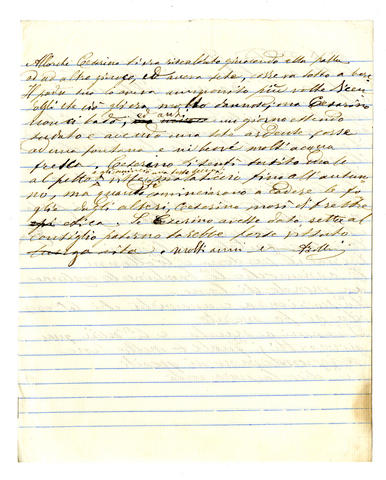 Allorchè Cesarino s'era riscaldato giuocando alla palla
od ad altro giuoco, ed aveva sete, correva tosto a bere.
Il padre suo lo aveva ammonito più volte dicen
dogli che ciò gli era molto dannoso, ma Cesarino
non ci badò, anzi un giorno essendo
sudato e avendo una sete ardente corse
ad una fontana e ni bevè molt'acqua
fredda. Cesarino si sentì subito male
al petto e fino all'autun
no, ma quando cominciarono a cadere le fo
glie dagli alberi, Cesarino morì di
etica. Se Cesarino avesse dato retta al
consiglio paterno sarebbe forse vissuto
lunga vita molti anni e